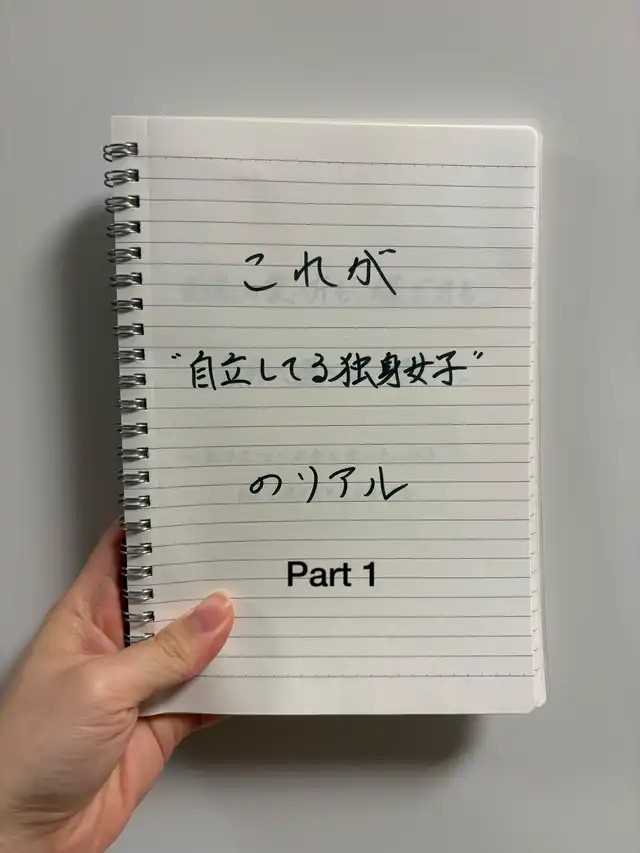 これが
"自立してる独身女子"
のリアル
Part 1